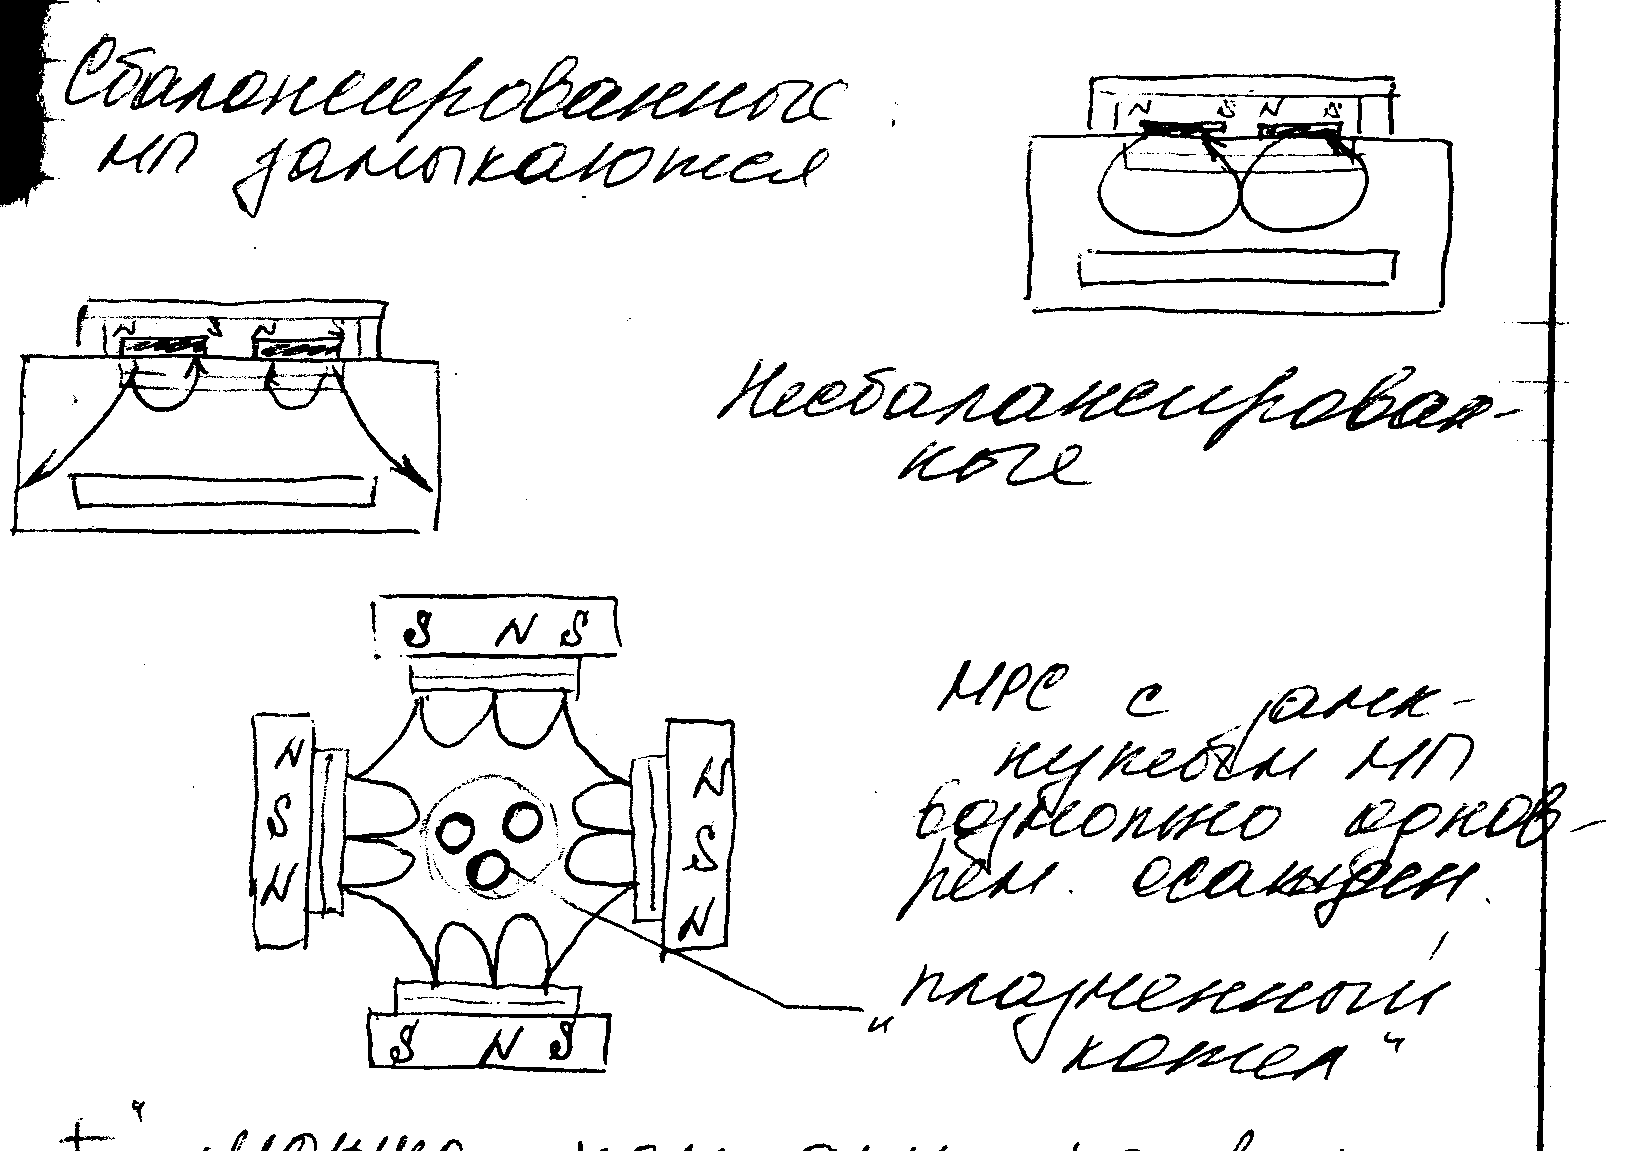 Сбалансированные
МП замыкаются
N S N S
N S N S
Несбалансирован-
ные
S N S
N S N
N S N
S N S
МРС с замк-
нутым МП
возможно однов-
рем. осажден.
"плазменный
котел"
+ "